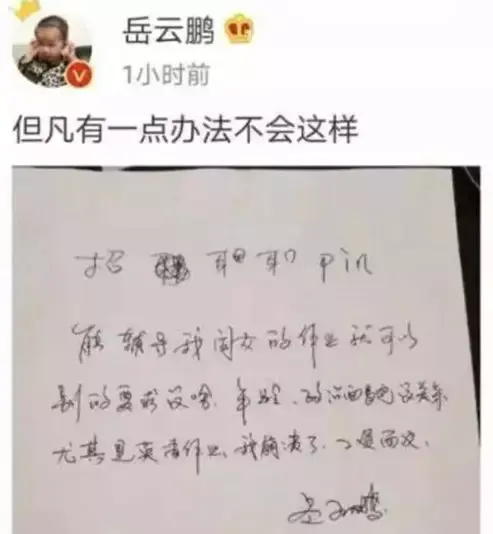 岳云鹏
1小时前
但凡有一点办法不会这样
招聘 pin
能辅导我闺女的作业就可以
别的要求没啥.年龄、
尤其是英语作业,我崩溃了.工资面议.
岳云鹏